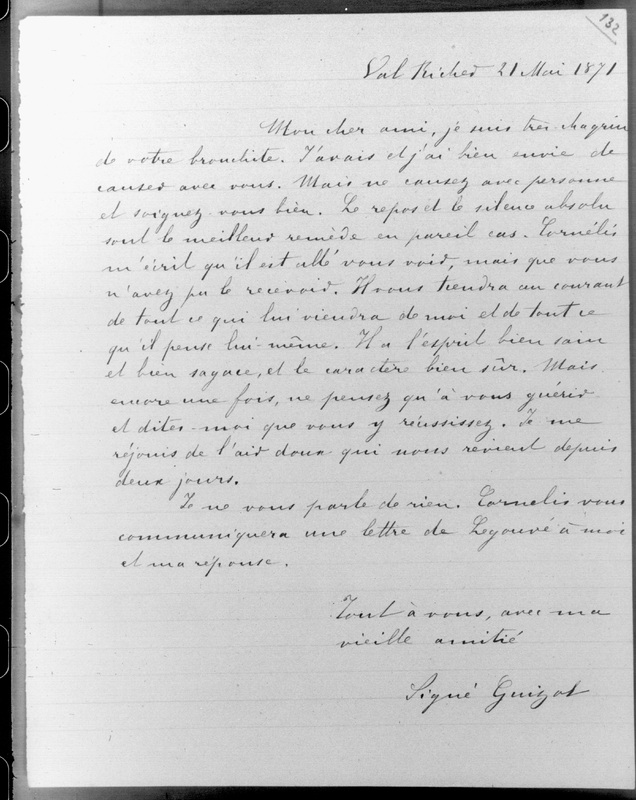 132
Val Richer 21 Mai 1871
Mon cher ami, je suis très chagrin
de votre bronchite. J'avais et j'ai bien envie de
causer avec vous. Mais ne causez avec personne
et soignez-vous bien. Le repos et le silence absolu
sont le meilleur remède en pareil cas. Cornélis
m'écrit qu'il est allé vous voir, mais que vous
n'avez pu le recevoir. Il vous tiendra au courant
de tout ce qui lui viendra de moi et de tout ce
qu'il pense lui-même. Il a l'esprit bien sain
et bien sagace, et le caractère bien sûr. Mais
encore une fois, ne pensez qu'à vous guérir
et dites-moi que vous y réussissez. Je me
réjouis de l'air doux qui nous revient depuis
deux jours.
Je ne vous parle de rien. Cornelis vous
communiquera une lettre de Legouvé à moi
et ma réponse.
Tout à vous, avec ma
vieille amitié
Signé Guizot